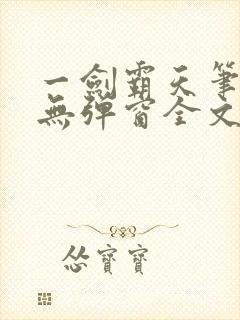 一劍霸天筆
無彈窗全文
慫寶寶